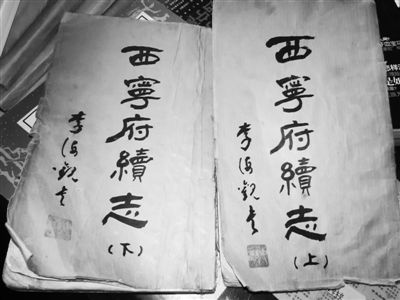 西寧府續志
（下）
李海觀㐰
西寧府續志
（上）
李海觀㐰